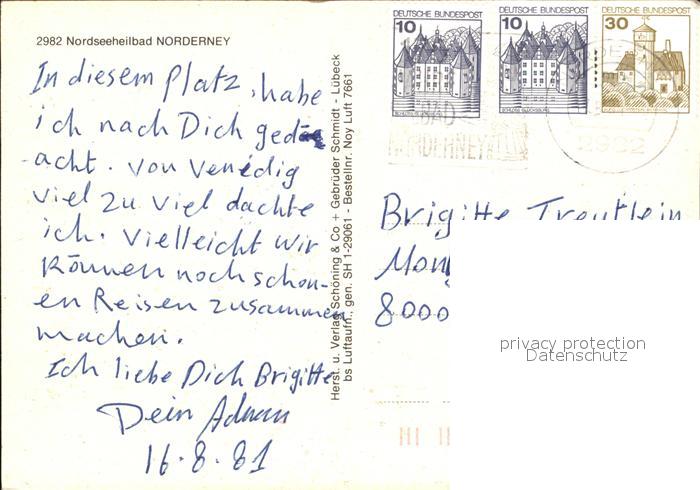 2982 Nordseeheilbad NORDERNEY
In diesem Platz, habe
ich nach Dich ged
acht. von Venedig
viel zu viel dachte
ich. vielleicht wir
können noch schön-
en Reisen zusammen
machen.
Ich liebe Dich Brigitte
Dein Adnan
16.8.81
Herst. u. Verlag Schöning & Co + Gebrüder Schmidt - Lübeck
bs Luftaufn., gen. SH 1-29061 - Bestellnr. Noy Luft 7661
DEUTSCHE BUNDESPOST
10
DEUTSCHE BUNDESPOST
10
DEUTSCHE BUNDESPOST
30
SCHLOSS GLÜCKSBURG
BAD
NORDERNEY
2982
Brigitte Treutlein
8000
privacy protection
Datenschutz